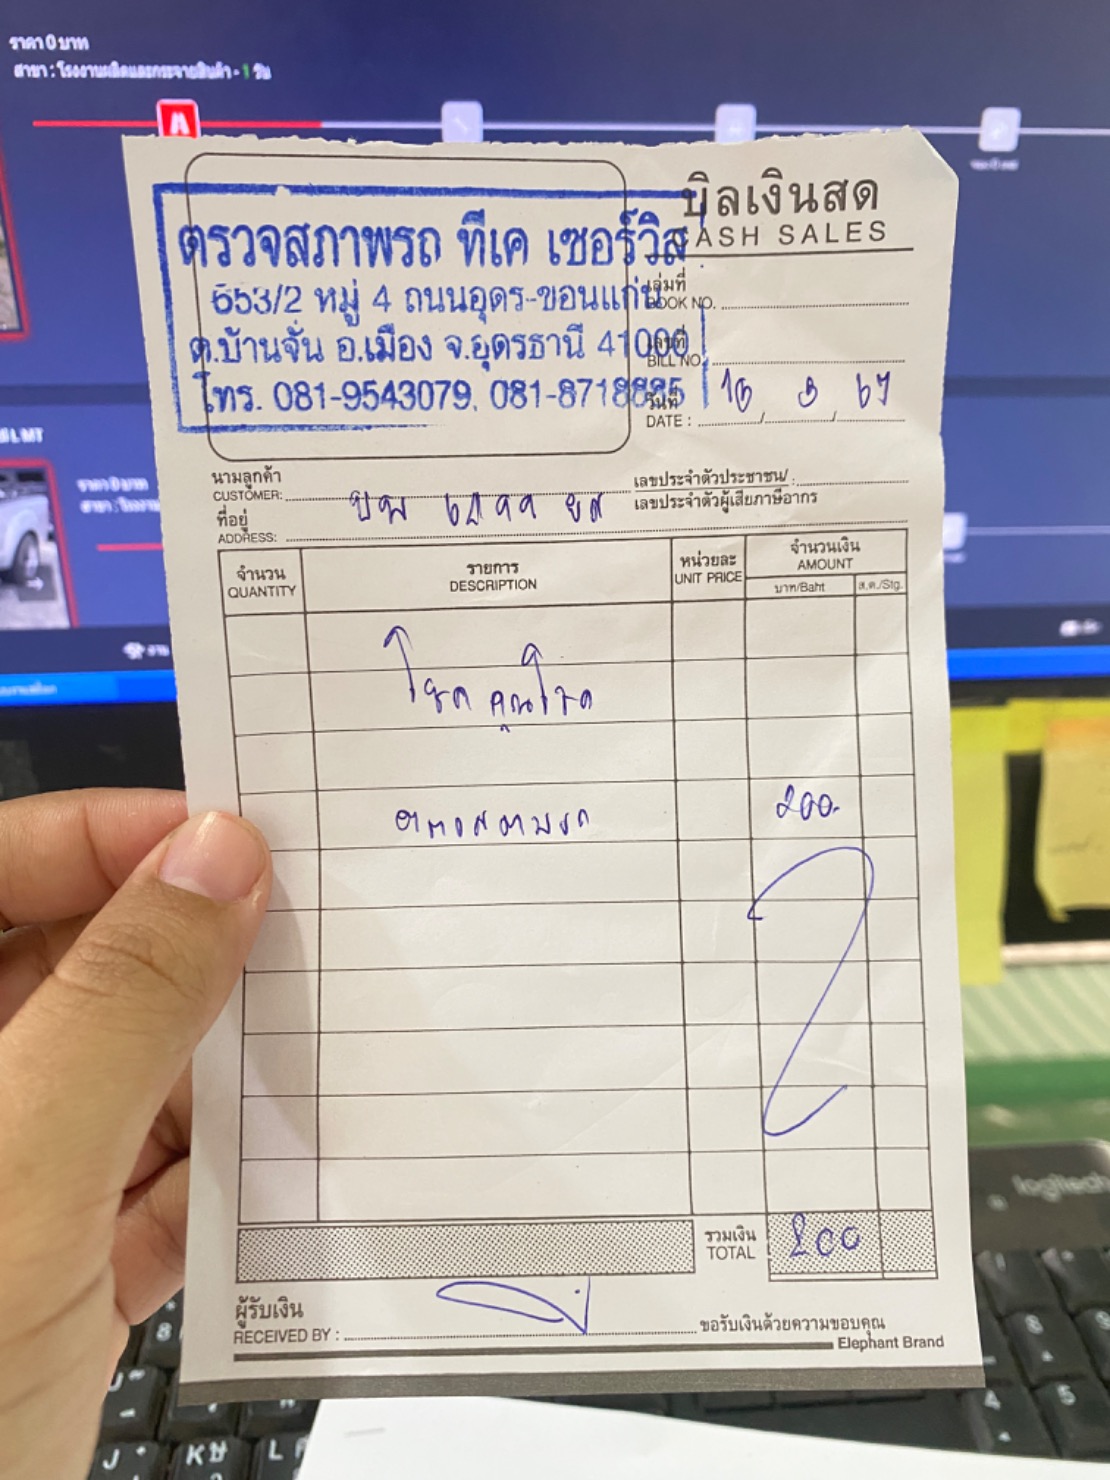 ราคา 0 บาท
สาขา : โรงงานผลิตและกระจายสินค้า - 1 วัน
ตรวจสภาพรถ ทีเค เซอร์วิส
653/2 หมู่ 4 ถนนอุดร-ขอนแก่น
ต.บ้านจั่น อ.เมือง จ.อุดรธานี 41000
โทร. 081-9543079, 081-8718885
บิลเงินสด
CASH SALES
เล่มที่
BOOK NO.
เลขที่
BILL NO.
วันที่
DATE : 16 / 3 / 67
นามลูกค้า
CUSTOMER:
เลขประจำตัวประชาชน/
เลขประจำตัวผู้เสียภาษีอากร
ที่อยู่
ADDRESS:
จำนวน
QUANTITY
รายการ
DESCRIPTION
หน่วยละ
UNIT PRICE
จำนวนเงิน
AMOUNT
บาท/Baht
ส.ต./Stg.
ตรวจสภาพรถ 200.-
รวมเงิน
TOTAL
200
ผู้รับเงิน
RECEIVED BY :
ขอรับเงินด้วยความขอบคุณ
Elephant Brand
logitech